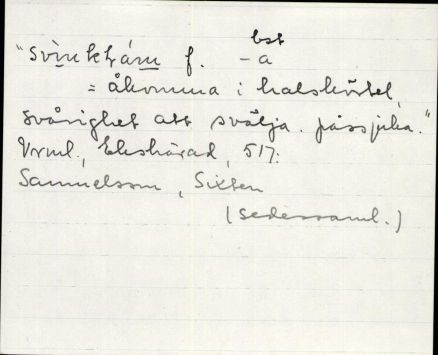 bst
"svinktjárn f. -a
= åkomma i halskörtel,
svårighet att svälja. påssjuka."
Vrml., Ekshärad, 517:
Samuelsson, Sixten
(sedessaml.)